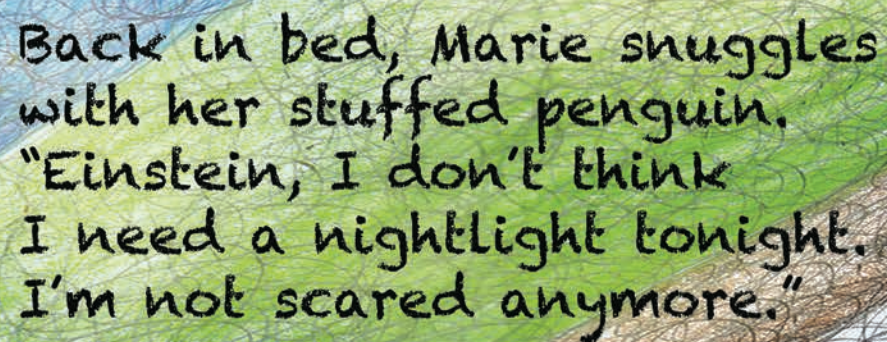 Back in bed, Marie snuggles
with her stuffed penguin.
"Einstein, I don't think
I need a nightlight tonight.
I'm not scared anymore."